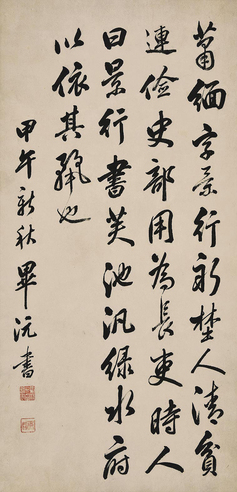 蕭緬字景行新埜人清貧
連儉史部用為長吏時人
曰景行書芙池汎綠水府
以依其麗也
甲午新秋畢沅書